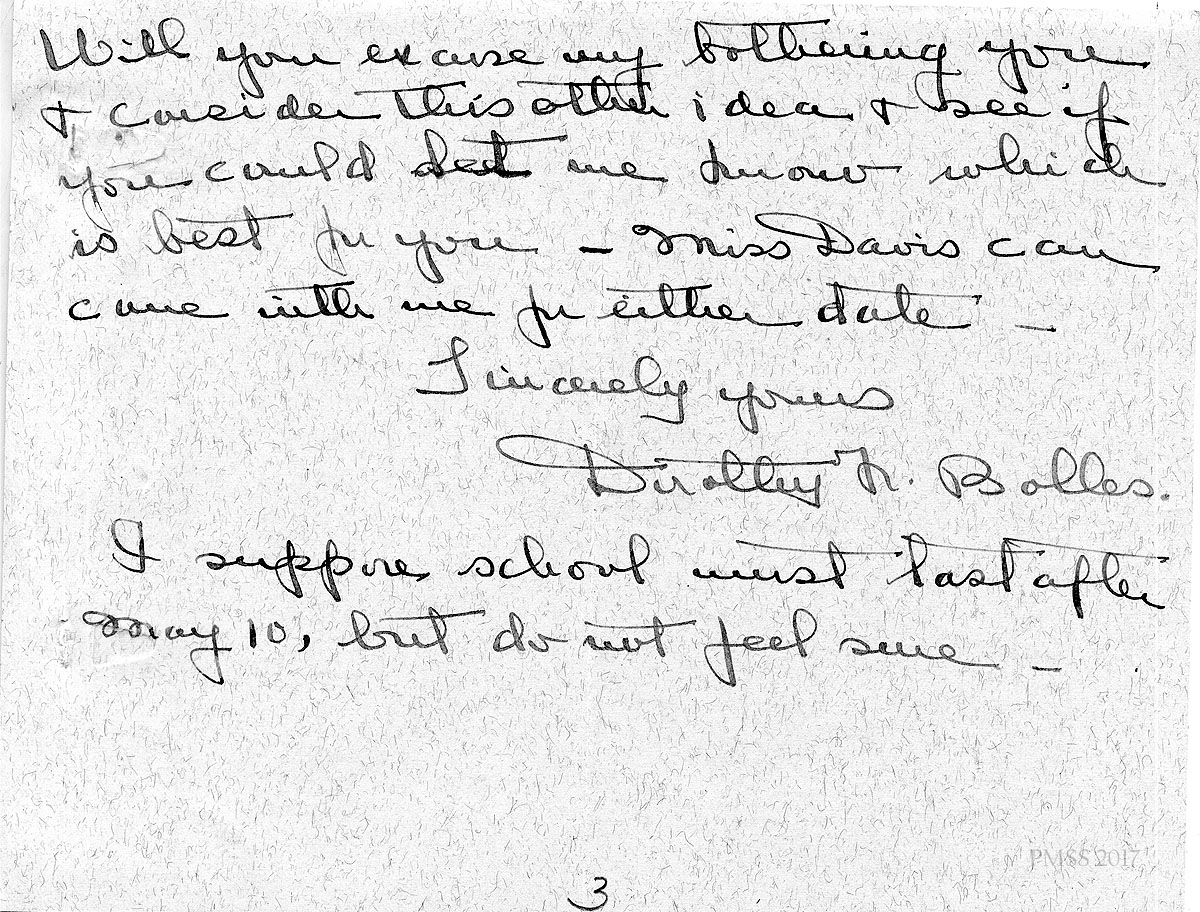 Will you excuse my bothering you
& consider this other idea & see if
you could let me know which
is best for you – Miss Davis can
come with me for either date –
Sincerely yours
Dorothy N. Bolles.
I suppose school must last after
May 10, but do not feel sure –
PMSS 2017
3